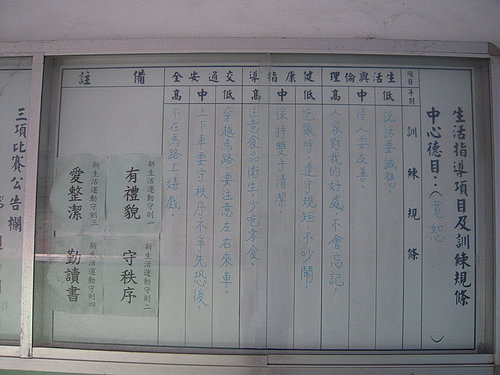 生活指導項目及訓練規條
中心德目：（寬恕）
項目 年別 訓練規條
生活與倫理
低 說話要誠懇。
中 待人要友善。
高 人家對我的好處，不會忘記。
健康指導
低 吃飯時，遵規矩不吵鬧。
中 保持雙手清潔
高 注意食品衛生，少吃零食。
交通安全
低 穿越馬路，要注意左右來車。
中 上下車要守秩序，不爭先恐後。
高 不在馬路上嬉戲
備註
新生活運動守則一
有禮貌
新生活運動守則二
守秩序
新生活運動守則三
愛整潔
新生活運動守則四
勤讀書
三項比賽公告欄